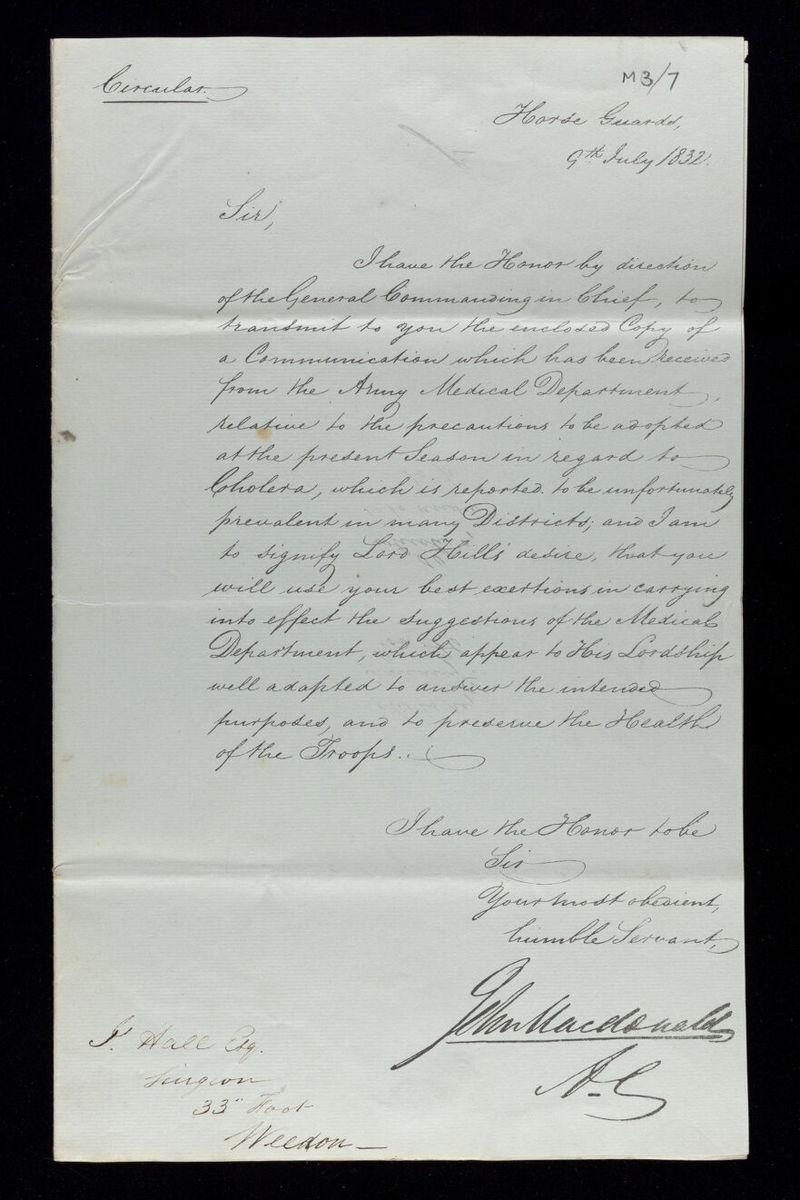 Circular.
M3/7
Horse Guards,
9th July 1832.
Sir,
I have the Honor by direction
of the General Commanding in Chief, to
transmit to you the enclosed Copy of
a Communication which has been received
from the Army Medical Department,
relative to the precautions to be adopted
at the present Season in regard to
Cholera, which is reported to be unfortunately
prevalent in many Districts; and I am
to signify Lord Hill's desire, that you
will use your best exertions in carrying
into effect the suggestions of the Medical
Department, which appear to His Lordship
well adapted to answer the intended
purposes, and to preserve the Health
of the Troops.
I have the Honor to be
Sir
Your most obedient,
humble Servant,
John Macdonald
A.G
J. Hall Esq.
Surgeon
33d Foot
Weedon